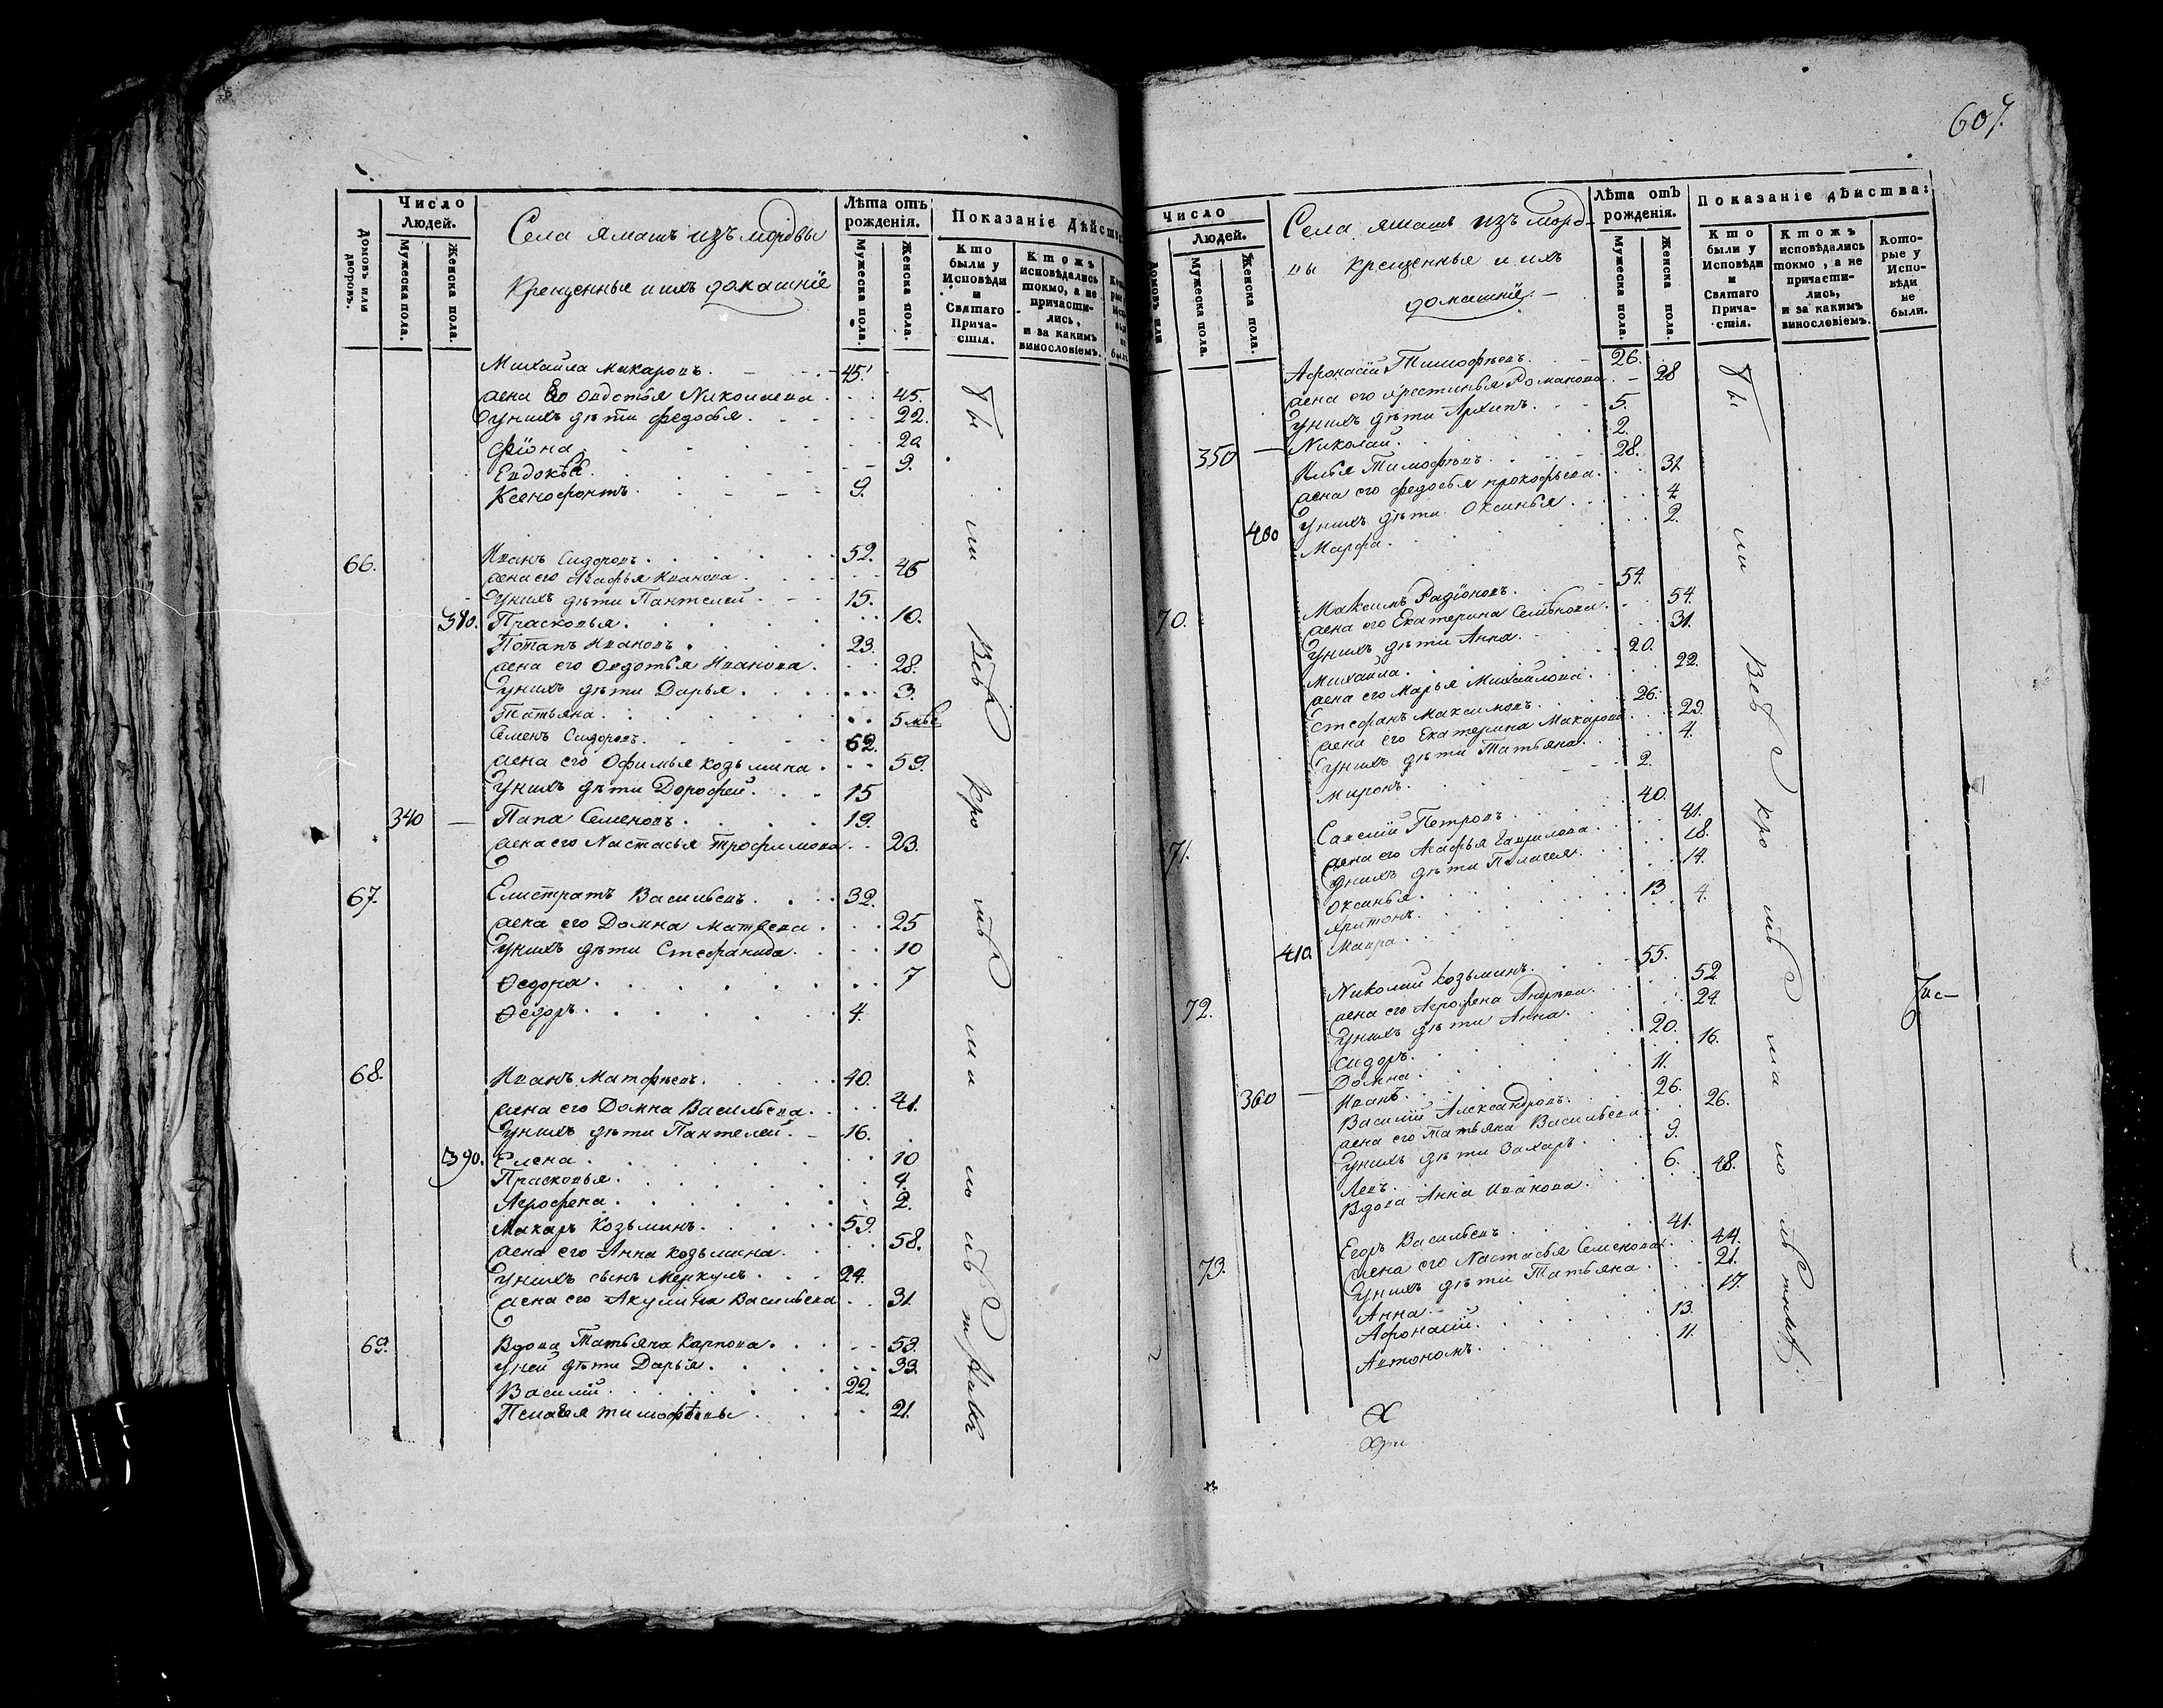 607.
Число
Людей.
Домовъ или дворовъ.
Мужеска пола.
Женска пола.
Села Ямашъ изъ мордвы
крещенныя и ихъ домашнiе
Лѣта отъ
рожденiя.
Мужеска пола.
Женска пола.
Показанiе Дѣйст
Кто
были у
Исповѣди
и
Святаго
Прича-
стiя.
Ктожъ
исповѣдались
токмо, а не
причасти-
лись,
и за какимъ
винословiемъ.
Михайла Макаровъ. 45.
жена его Овдотья Николаева 45.
у нихъ дѣти Федосья. 22.
Фiона
Евдокѣя. 9.
Ксенофонтъ. 9.
66. Иванъ Сидоровъ. 52.
жена его Агафья Иванова. 45
у нихъ дѣти Пантелей. 15.
380. Прасковья. 10.
Потапъ Ивановъ. 23.
жена его Овдотья Иванова. 28.
у нихъ дѣти Дарья. 3.
Татьяна. 5 мѣс
Семенъ Сидоровъ. 62.
жена его Офимья Козьмина. 59.
у нихъ дѣти Дорофей. 15
340 — Папа Семеновъ. 19.
жена его Настасья Трофимова 23.
67. Елистратъ Васильевъ. 32.
жена его Домна Матвеева. 25
у нихъ дѣти Стефанида. 10
Ѳедора. 7
Ѳедоръ. 4.
68. Иванъ Матфѣевъ. 40.
жена его Домна Васильева. 41.
у нихъ дѣти Пантелей. 16.
390. Елена. 10
Прасковья. 4.
Агрофена. 2.
Макаръ Козьминъ. 59.
жена его Анна Козьмина. 58.
у нихъ сынъ Меркулъ. 24.
жена его Акулина Васильева 31
69. Вдова Татьяна Карпова. 53.
у ней дѣти Дарья. 33.
Василiй. 22.
Пелагея Тимофѣевы. 21.
Число
Людей.
Домовъ или
Мужеска пола.
Женска пола.
Села Ямашъ изъ морд-
вы крещенныя и ихъ
домашнiе
Лѣта отъ
рожденiя.
Мужеска пола.
Женска пола.
Показанiе дѣйства:
Кто
были у
Исповѣди
и
Святаго
Прича-
стiя.
Ктожъ
исповѣдались
токмо, а не
причасти-
лись,
и за какимъ
винословiемъ.
Кото-
рые у
Испо-
вѣди
не
были.
Афонасiй Тимофѣевъ. 26.
жена его Христинья Романова 28
у нихъ дѣти Архипъ. 5.
350 — Николай. 2.
Илья Тимофѣевъ. 28.
жена его Федосья Прокофьева. 31
у нихъ дѣти Оксинья. 4
400 Марфа. 2.
70. Максимъ Радiоновъ. 54.
жена его Екатерина Семенова. 54.
у нихъ дѣти Анна. 31.
Михайла. 20.
жена его Марья Михайлова. 22.
Стефанъ Максимовъ. 26.
жена его Екатерина Макарова 29.
у нихъ дѣти Татьяна. 4.
Миронъ. 2.
71. Савелiй Петровъ. 40.
жена его Агафья Гаврилова. 41.
у нихъ дѣти Пелагея. 18.
Оксинья. 14.
Харитонъ. 13
410. Мавра. 4.
72. Николай Козьминъ. 55.
жена его Агрофена Андрѣева. 52
у нихъ дѣти Анна. 24.
Сидоръ. 20.
Домна. 16.
360 — Иванъ. 11.
Василiй Александровъ. 26.
жена его Татьяна Васильева 26.
у нихъ дѣти Захаръ. 9.
Левъ. 6.
Вдова Анна Иванова. 48.
73. Егоръ Васильевъ. 41.
жена его Настасья Семенова. 44.
у нихъ дѣти Татьяна. 21.
Анна. 17.
Афонасiй. 13.
Автономъ. 11.